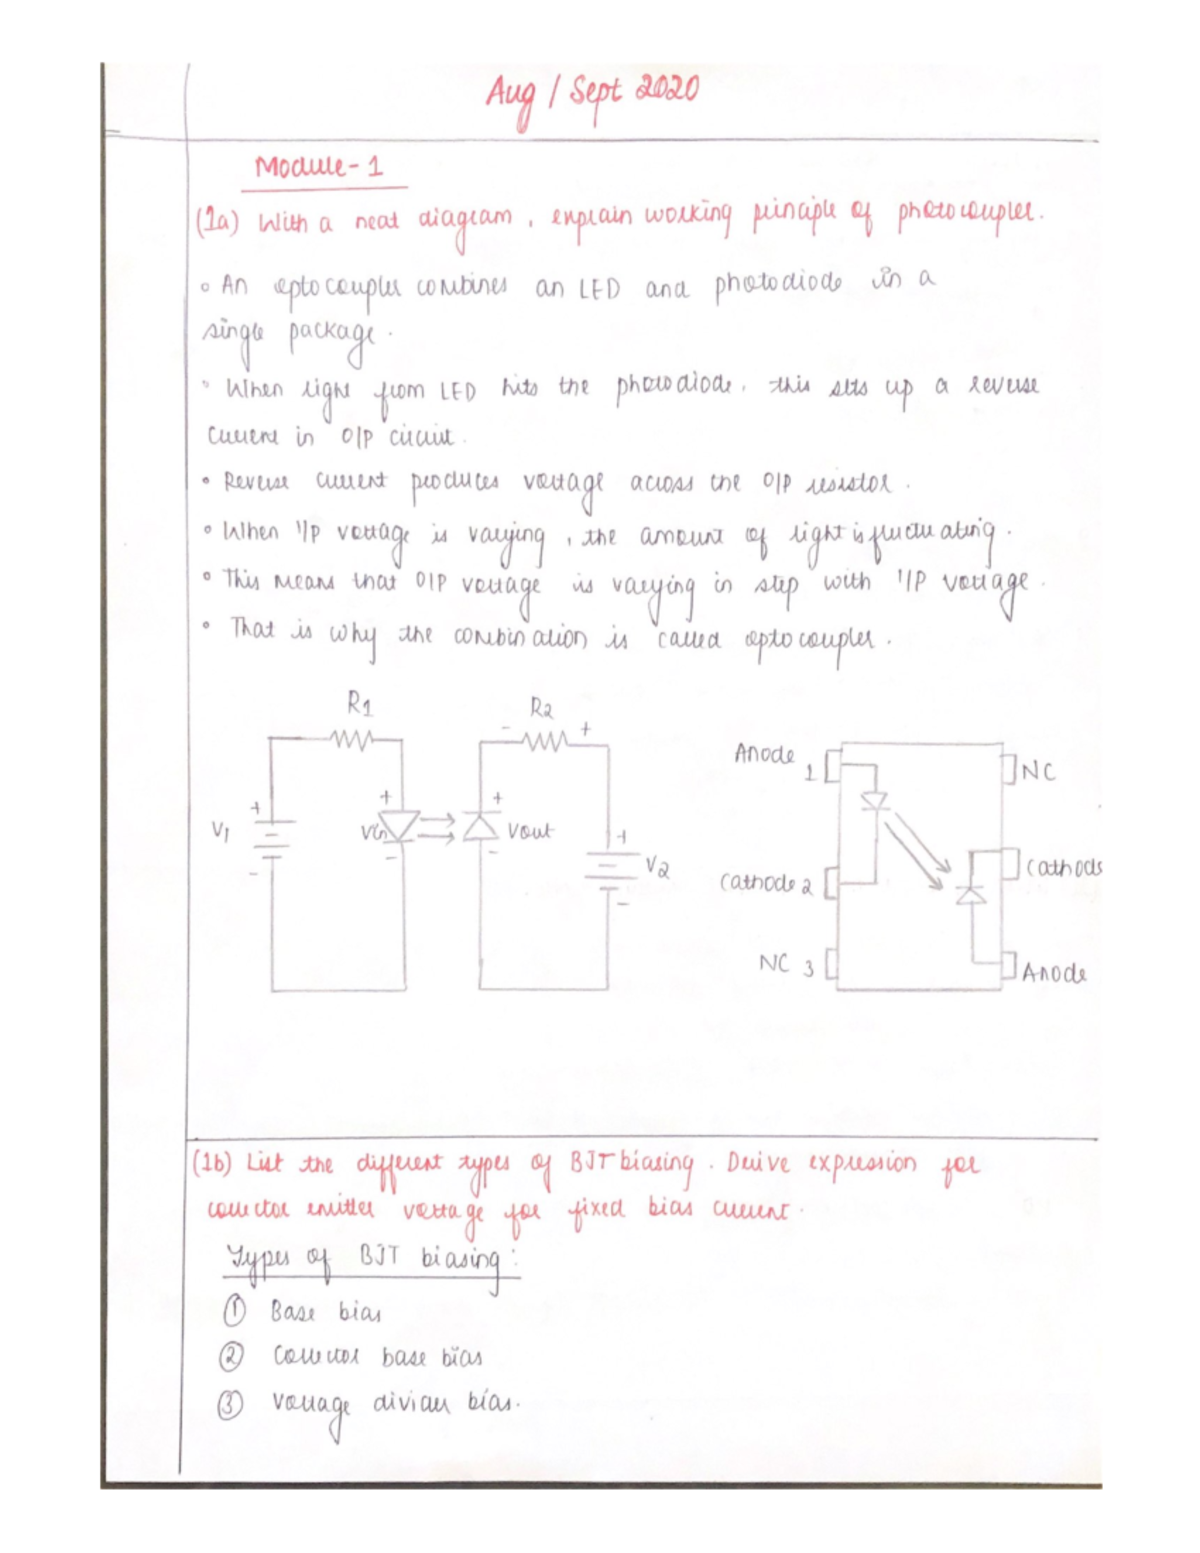 Aug / Sept 2020
Module-1
(1a) With a neat diagram, explain working principle of photocoupler.
◦ An optocoupler combines an LED and photodiode in a
single package.
◦ When light from LED hits the photodiode, this sets up a reverse
current in O/P circuit.
• Reverse current produces voltage across the O/P resistor.
◦ When I/P voltage is varying, the amount of light is fluctuating.
◦ This means that O/P voltage is varying in step with I/P voltage.
◦ That is why the combination is called optocoupler.
R1
R2
- +
V1
+
-
+
Vin
-
+
Vout
-
+
V2
-
Anode 1
NC
Cathode 2
Cathode
NC 3
Anode
(1b) List the different types of BJT biasing. Derive expression for
collector emitter voltage for fixed bias current.
Types of BJT biasing:
① Base bias
② Collector base bias
③ Voltage divider bias.